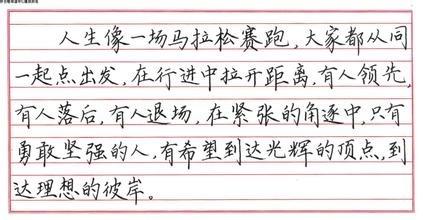 人生像一场马拉松赛跑，大家都从同
一起点出发，在行进中拉开距离，有人领先，
有人落后，有人退场，在紧张的角逐中，只有
勇敢坚强的人，有希望到达光辉的顶点，到
达理想的彼岸。